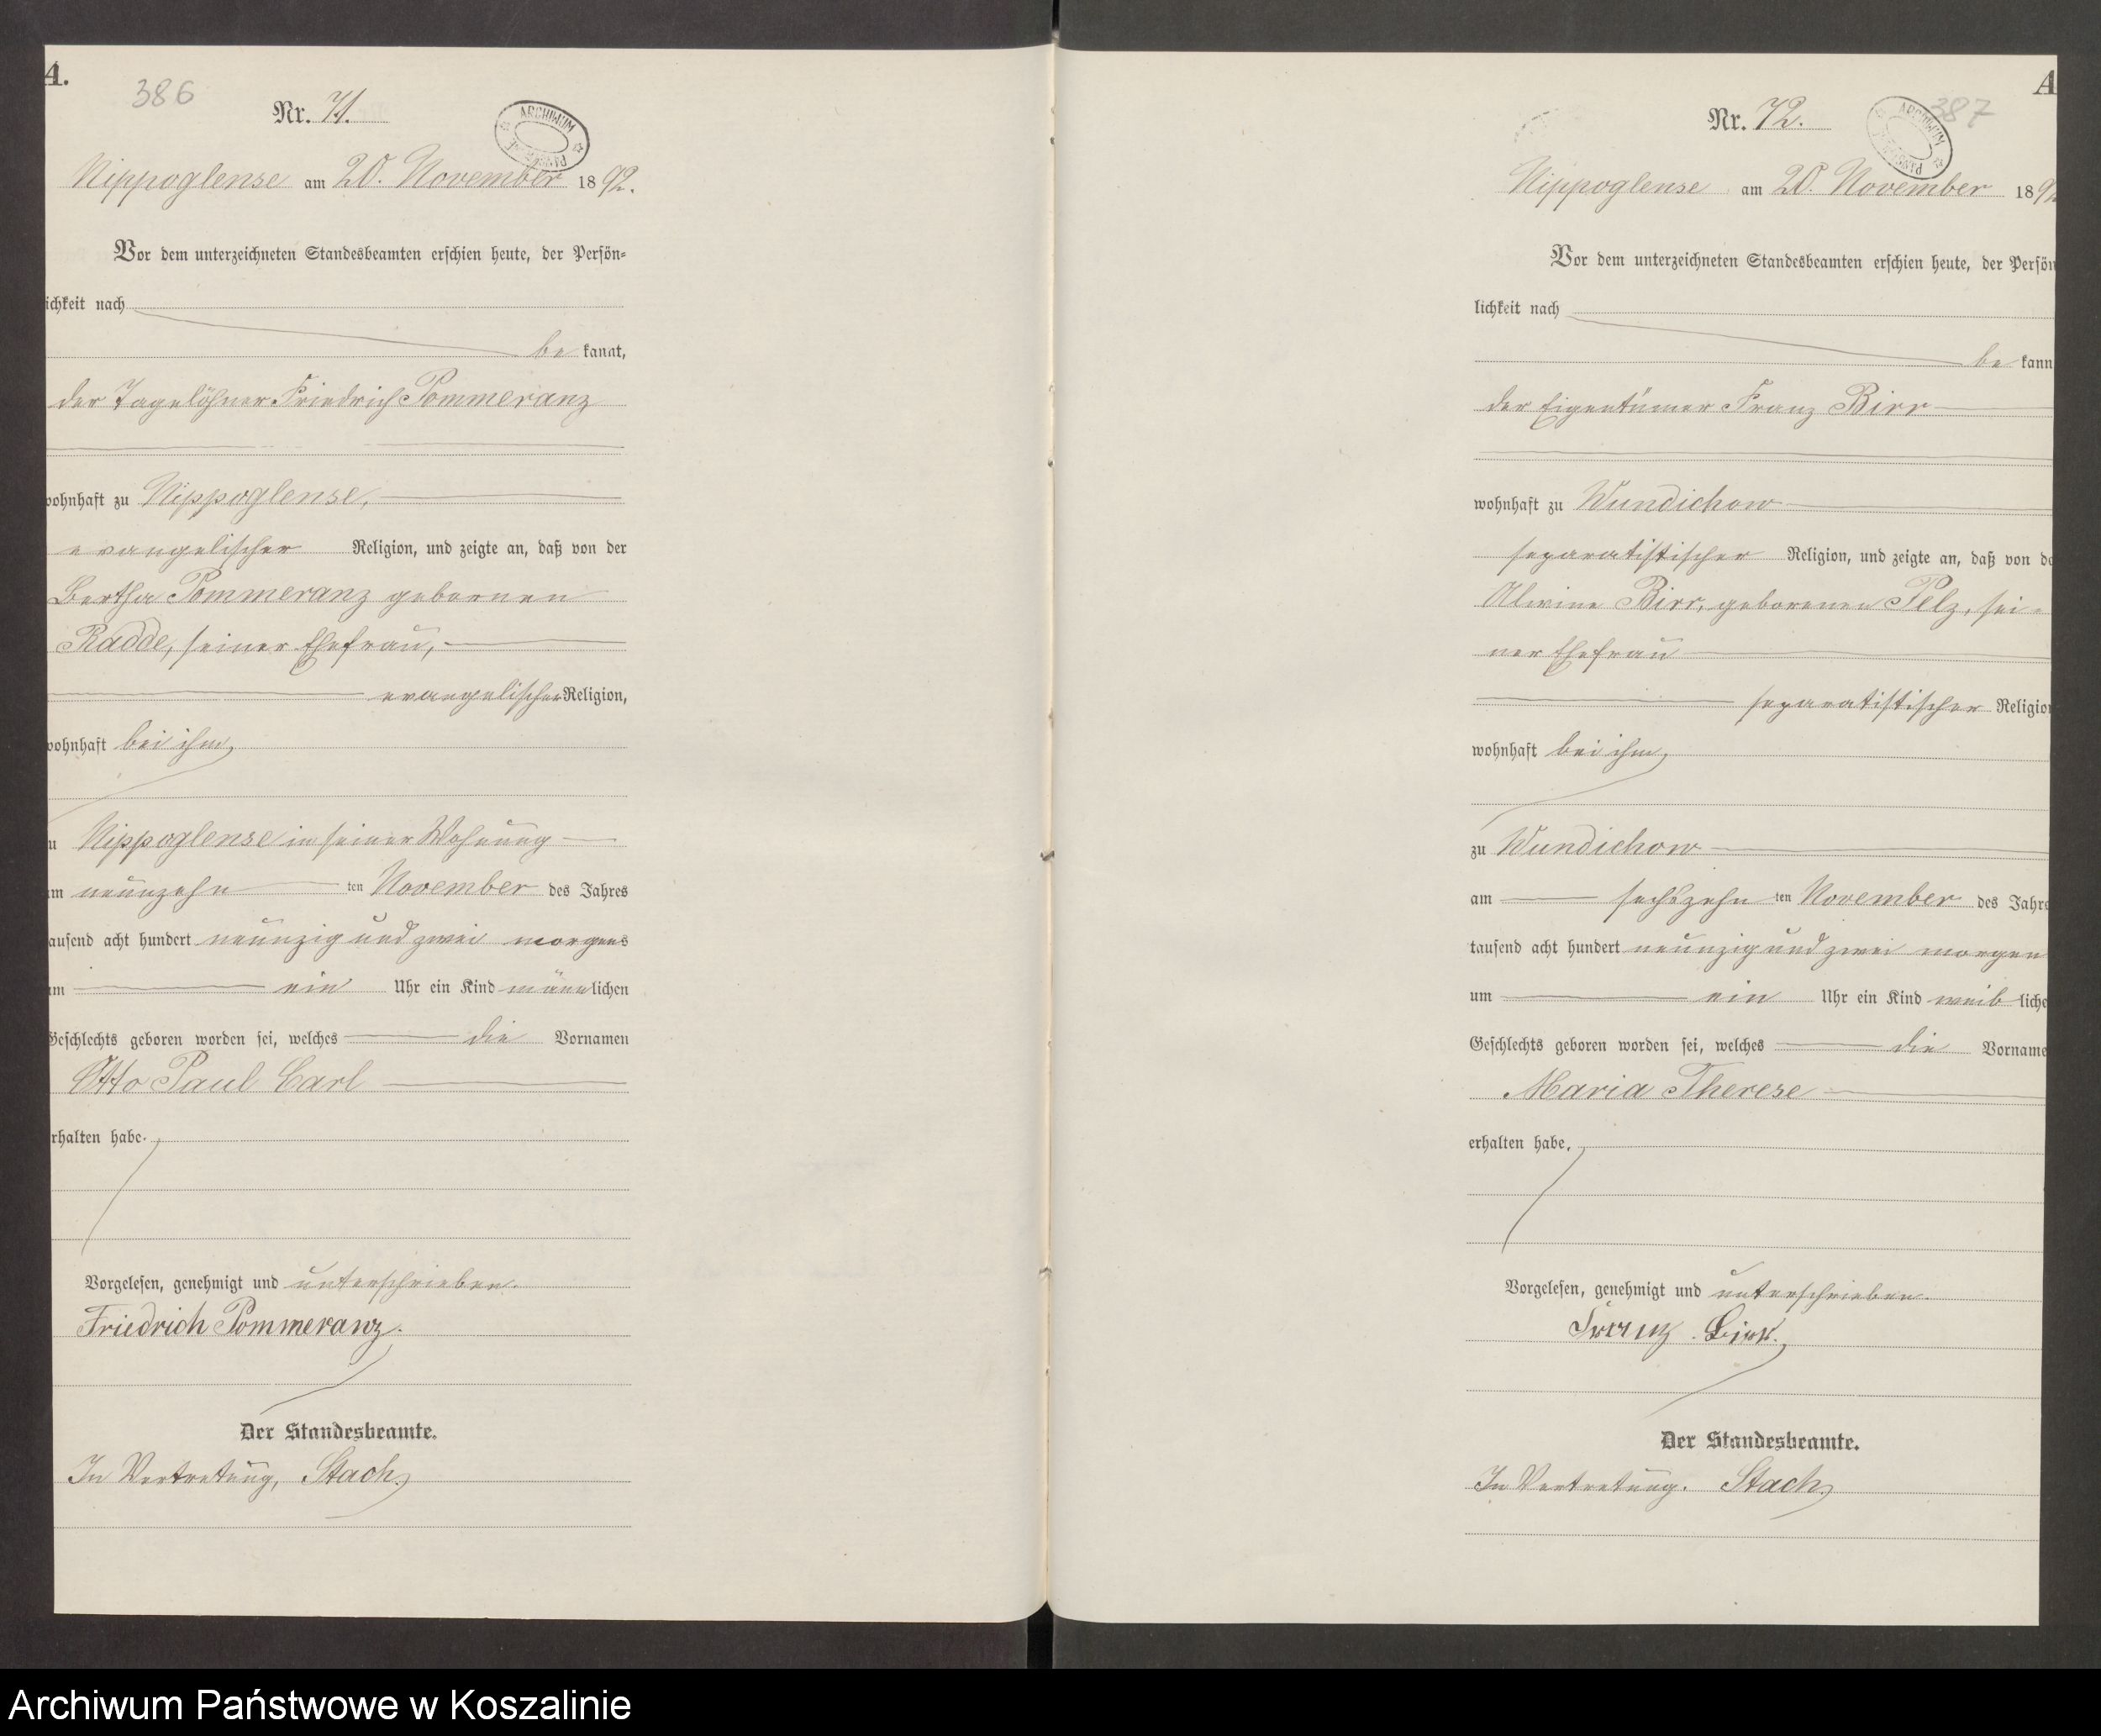 A.
386
Nr. 71.
ARCHIWUM
Nippoglense am 20. November 1892.
Vor dem unterzeichneten Standesbeamten erschien heute, der Persön-
ichkeit nach
be kannt,
der Tagelöhner Friedrich Pommeranz
wohnhaft zu Nippoglense,
evangelischer Religion, und zeigte an, daß von der
Bertha Pommeranz geborenen
Radde, seiner Ehefrau,
evangelischer Religion,
wohnhaft bei ihm,
u Nippoglense in seiner Wohnung
am neunzehn ten November des Jahres
tausend acht hundert neunzig und zwei morgens
um ein Uhr ein Kind männlichen
Geschlechts geboren worden sei, welches die Vornamen
Otto Paul Carl
rhalten habe.
Vorgelesen, genehmigt und unterschrieben.
Friedrich Pommeranz.
Der Standesbeamte.
In Vertretung, Stach.
A
387
Nr. 72.
ARCHIWUM
Nippoglense am 20. November 189
Vor dem unterzeichneten Standesbeamten erschien heute, der Persön
lichkeit nach
be kann
der Eigentümer Franz Birr
wohnhaft zu Wundichow
separatistischer Religion, und zeigte an, daß von de
Alwine Birr, geborenen Pelz, sei-
ner Ehefrau
separatistischer Religion
wohnhaft bei ihm,
zu Wundichow
am sechszehn ten November des Jahre
tausend acht hundert neunzig und zwei morgen
um ein Uhr ein Kind weib liche
Geschlechts geboren worden sei, welches die Vorname
Maria Therese
erhalten habe.
Vorgelesen, genehmigt und unterschrieben.
Franz Birr.
Der Standesbeamte.
In Vertretung. Stach.
Archiwum Państwowe w Koszalinie